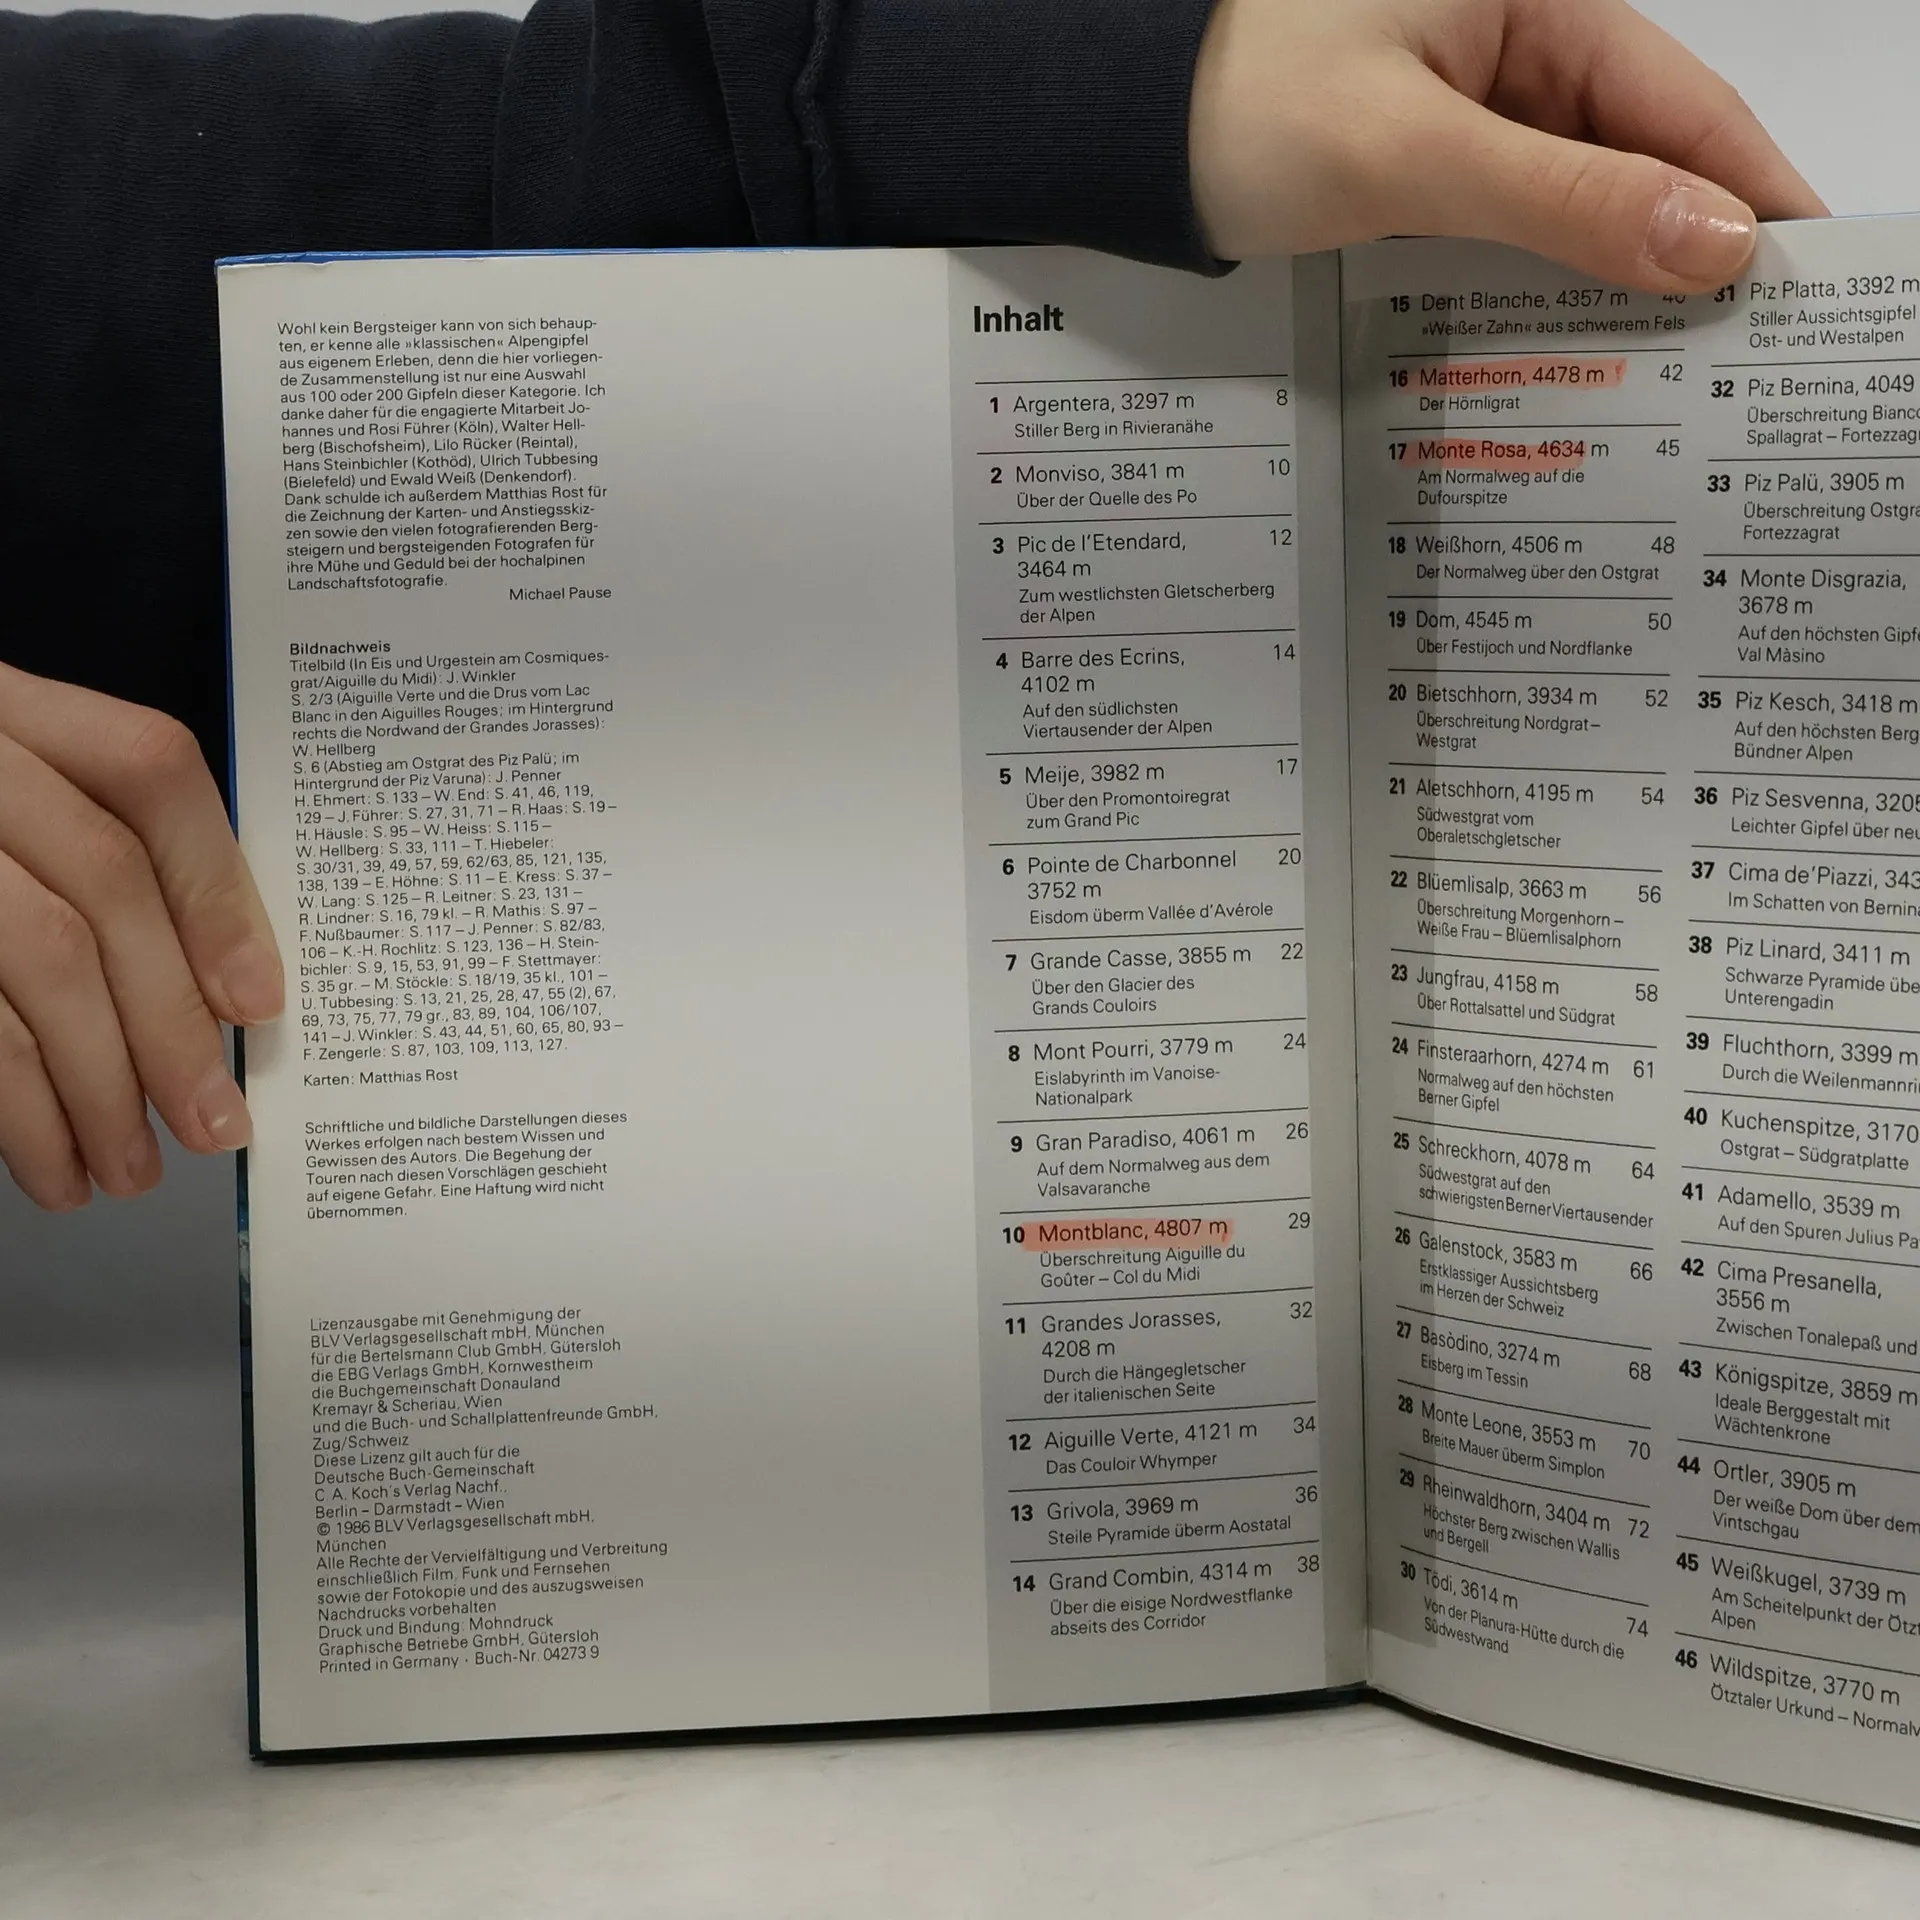 Wohl kein Bergsteiger kann von sich behaup-
ten, er kenne alle »klassischen« Alpengipfel
aus eigenem Erleben, denn die hier vorliegen-
de Zusammenstellung ist nur eine Auswahl
aus 100 oder 200 Gipfeln dieser Kategorie. Ich
danke daher für die engagierte Mitarbeit Jo-
hannes und Rosi Führer (Köln), Walter Hell-
berg (Bischofsheim), Lilo Rücker (Reintal),
Hans Steinbichler (Kothöd), Ulrich Tubbesing
(Bielefeld) und Ewald Weiß (Denkendorf).
Dank schulde ich außerdem Matthias Rost für
die Zeichnung der Karten- und Anstiegsskiz-
zen sowie den vielen fotografierenden Berg-
steigern und bergsteigenden Fotografen für
ihre Mühe und Geduld bei der hochalpinen
Landschaftsfotografie.
Michael Pause
Bildnachweis
Titelbild (In Eis und Urgestein am Cosmiques-
grat/Aiguille du Midi): J. Winkler
S. 2/3 (Aiguille Verte und die Drus vom Lac
Blanc in den Aiguilles Rouges; im Hintergrund
rechts die Nordwand der Grandes Jorasses):
W. Hellberg
S. 6 (Abstieg am Ostgrat des Piz Palü; im
Hintergrund der Piz Varuna): J. Penner
H. Ehmert: S. 133 – W. End: S. 41, 46, 119,
129 – J. Führer: S. 27, 31, 71 – R. Haas: S. 19 –
H. Häusle: S. 95 – W. Heiss: S. 115 –
W. Hellberg: S. 33, 111 – T. Hiebeler:
S. 30/31, 39, 49, 57, 59, 62/63, 85, 121, 135,
138, 139 – E. Höhne: S. 11 – E. Kress: S. 37 –
W. Lang: S. 125 – R. Leitner: S. 23, 131 –
R. Lindner: S. 16, 79 kl. – R. Mathis: S. 97 –
F. Nußbaumer: S. 117 – J. Penner: S. 82/83,
106 – K.-H. Rochlitz: S. 123, 136 – H. Stein-
bichler: S. 9, 15, 53, 91, 99 – F. Stettmayer:
S. 35 gr. – M. Stöckle: S. 18/19, 35 kl., 101 –
U. Tubbesing: S. 13, 21, 25, 28, 47, 55 (2), 67,
69, 73, 75, 77, 79 gr., 83, 89, 104, 106/107,
141 – J. Winkler: S. 43, 44, 51, 60, 65, 80, 93 –
F. Zengerle: S. 87, 103, 109, 113, 127.
Karten: Matthias Rost
Schriftliche und bildliche Darstellungen dieses
Werkes erfolgen nach bestem Wissen und
Gewissen des Autors. Die Begehung der
Touren nach diesen Vorschlägen geschieht
auf eigene Gefahr. Eine Haftung wird nicht
übernommen.
Lizenzausgabe mit Genehmigung der
BLV Verlagsgesellschaft mbH, München
für die Bertelsmann Club GmbH, Gütersloh
die EBG Verlags GmbH, Kornwestheim
die Buchgemeinschaft Donauland
Kremayr & Scheriau, Wien
und die Buch- und Schallplattenfreunde GmbH,
Zug/Schweiz
Diese Lizenz gilt auch für die
Deutsche Buch-Gemeinschaft
C. A. Koch's Verlag Nachf.,
Berlin – Darmstadt – Wien
© 1986 BLV Verlagsgesellschaft mbH,
München
Alle Rechte der Vervielfältigung und Verbreitung
einschließlich Film, Funk und Fernsehen
sowie der Fotokopie und des auszugsweisen
Nachdrucks vorbehalten
Druck und Bindung: Mohndruck
Graphische Betriebe GmbH, Gütersloh
Printed in Germany · Buch-Nr. 04273 9
Inhalt
1 Argentera, 3297 m 8
Stiller Berg in Rivieranähe
2 Monviso, 3841 m 10
Über der Quelle des Po
3 Pic de l'Etendard, 12
3464 m
Zum westlichsten Gletscherberg
der Alpen
4 Barre des Ecrins, 14
4102 m
Auf den südlichsten
Viertausender der Alpen
5 Meije, 3982 m 17
Über den Promontoiregrat
zum Grand Pic
6 Pointe de Charbonnel 20
3752 m
Eisdom überm Vallée d'Avérole
7 Grande Casse, 3855 m 22
Über den Glacier des
Grands Couloirs
8 Mont Pourri, 3779 m 24
Eislabyrinth im Vanoise-
Nationalpark
9 Gran Paradiso, 4061 m 26
Auf dem Normalweg aus dem
Valsavaranche
10 Montblanc, 4807 m 29
Überschreitung Aiguille du
Goûter – Col du Midi
11 Grandes Jorasses, 32
4208 m
Durch die Hängegletscher
der italienischen Seite
12 Aiguille Verte, 4121 m 34
Das Couloir Whymper
13 Grivola, 3969 m 36
Steile Pyramide überm Aostatal
14 Grand Combin, 4314 m 38
Über die eisige Nordwestflanke
abseits des Corridor
15 Dent Blanche, 4357 m 40
»Weißer Zahn« aus schwerem Fels
16 Matterhorn, 4478 m 42
Der Hörnligrat
17 Monte Rosa, 4634 m 45
Am Normalweg auf die
Dufourspitze
18 Weißhorn, 4506 m 48
Der Normalweg über den Ostgrat
19 Dom, 4545 m 50
Über Festijoch und Nordflanke
20 Bietschhorn, 3934 m 52
Überschreitung Nordgrat –
Westgrat
21 Aletschhorn, 4195 m 54
Südwestgrat vom
Oberaletschgletscher
22 Blüemlisalp, 3663 m 56
Überschreitung Morgenhorn –
Weiße Frau – Blüemlisalphorn
23 Jungfrau, 4158 m 58
Über Rottalsattel und Südgrat
24 Finsteraarhorn, 4274 m 61
Normalweg auf den höchsten
Berner Gipfel
25 Schreckhorn, 4078 m 64
Südwestgrat auf den
schwierigsten Berner Viertausender
26 Galenstock, 3583 m 66
Erstklassiger Aussichtsberg
im Herzen der Schweiz
27 Basòdino, 3274 m 68
Eisberg im Tessin
28 Monte Leone, 3553 m 70
Breite Mauer überm Simplon
29 Rheinwaldhorn, 3404 m 72
Höchster Berg zwischen Wallis
und Bergell
30 Tödi, 3614 m 74
Von der Planura-Hütte durch die
Südwestwand
31 Piz Platta, 3392 m
Stiller Aussichtsgipfel
Ost- und Westalpen
32 Piz Bernina, 4049
Überschreitung Bianco
Spallagrat – Fortezzagr
33 Piz Palü, 3905 m
Überschreitung Ostgra
Fortezzagrat
34 Monte Disgrazia,
3678 m
Auf den höchsten Gipfe
Val Màsino
35 Piz Kesch, 3418 m
Auf den höchsten Berg
Bündner Alpen
36 Piz Sesvenna, 3205
Leichter Gipfel über neu
37 Cima de'Piazzi, 343
Im Schatten von Bernina
38 Piz Linard, 3411 m
Schwarze Pyramide übe
Unterengadin
39 Fluchthorn, 3399 m
Durch die Weilenmannri
40 Kuchenspitze, 3170
Ostgrat – Südgratplatte
41 Adamello, 3539 m
Auf den Spuren Julius Pa
42 Cima Presanella,
3556 m
Zwischen Tonalepaß und
43 Königspitze, 3859 m
Ideale Berggestalt mit
Wächtenkrone
44 Ortler, 3905 m
Der weiße Dom über dem
Vintschgau
45 Weißkugel, 3739 m
Am Scheitelpunkt der Ötzt
Alpen
46 Wildspitze, 3770 m
Ötztaler Urkund – Normalw